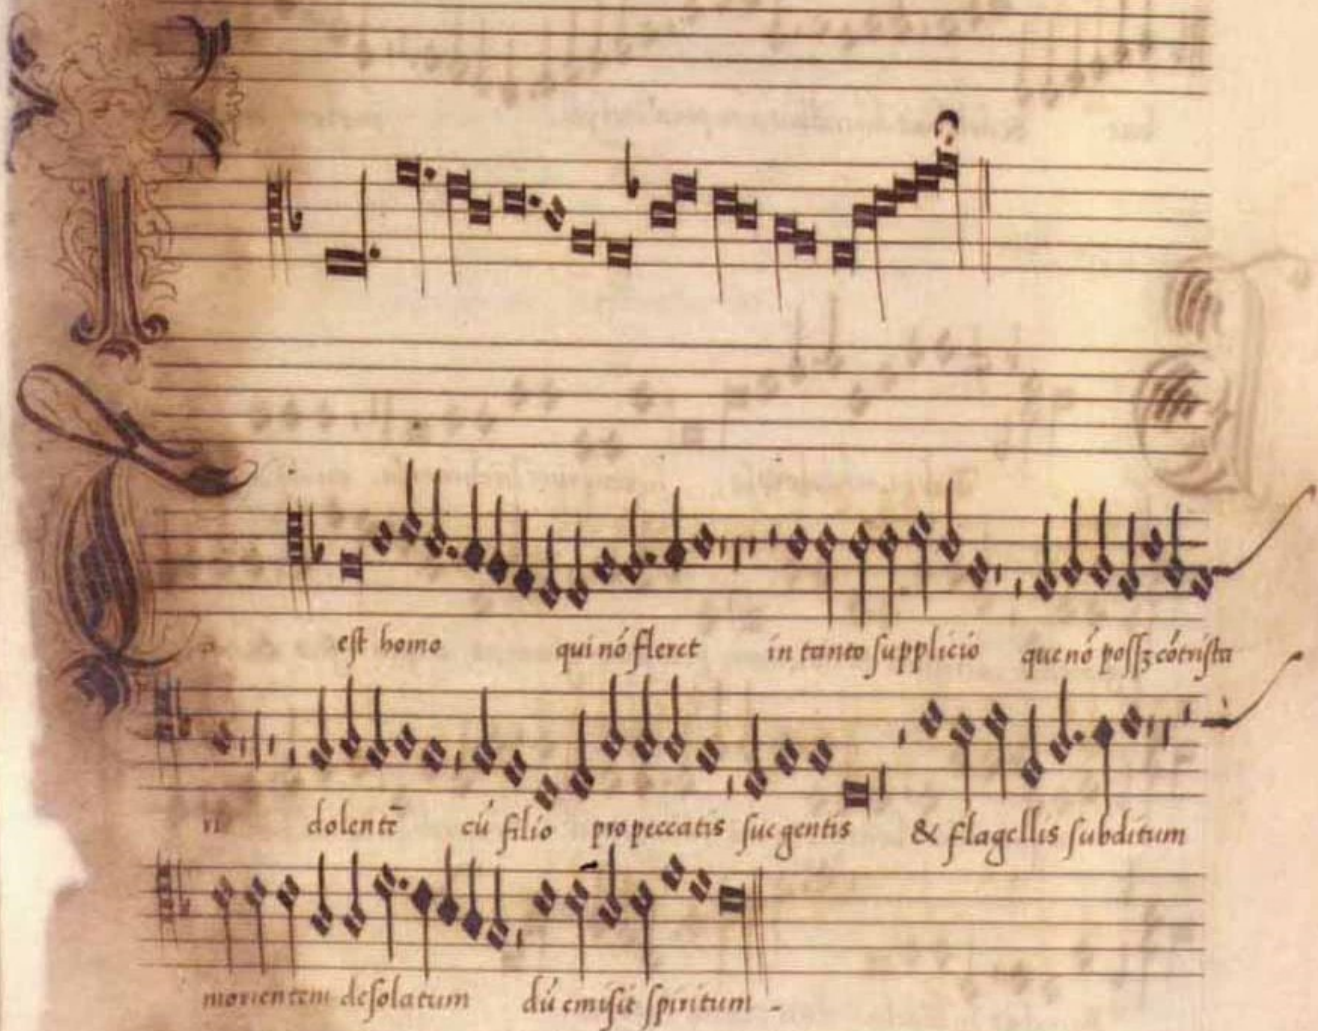 est homo qui nō fleret in tanto supplicio que nō possȝ cōtrista
ri dolentē cū filio pro peccatis sue gentis & flagellis subditum
morientem desolatum dū emisit spiritum -